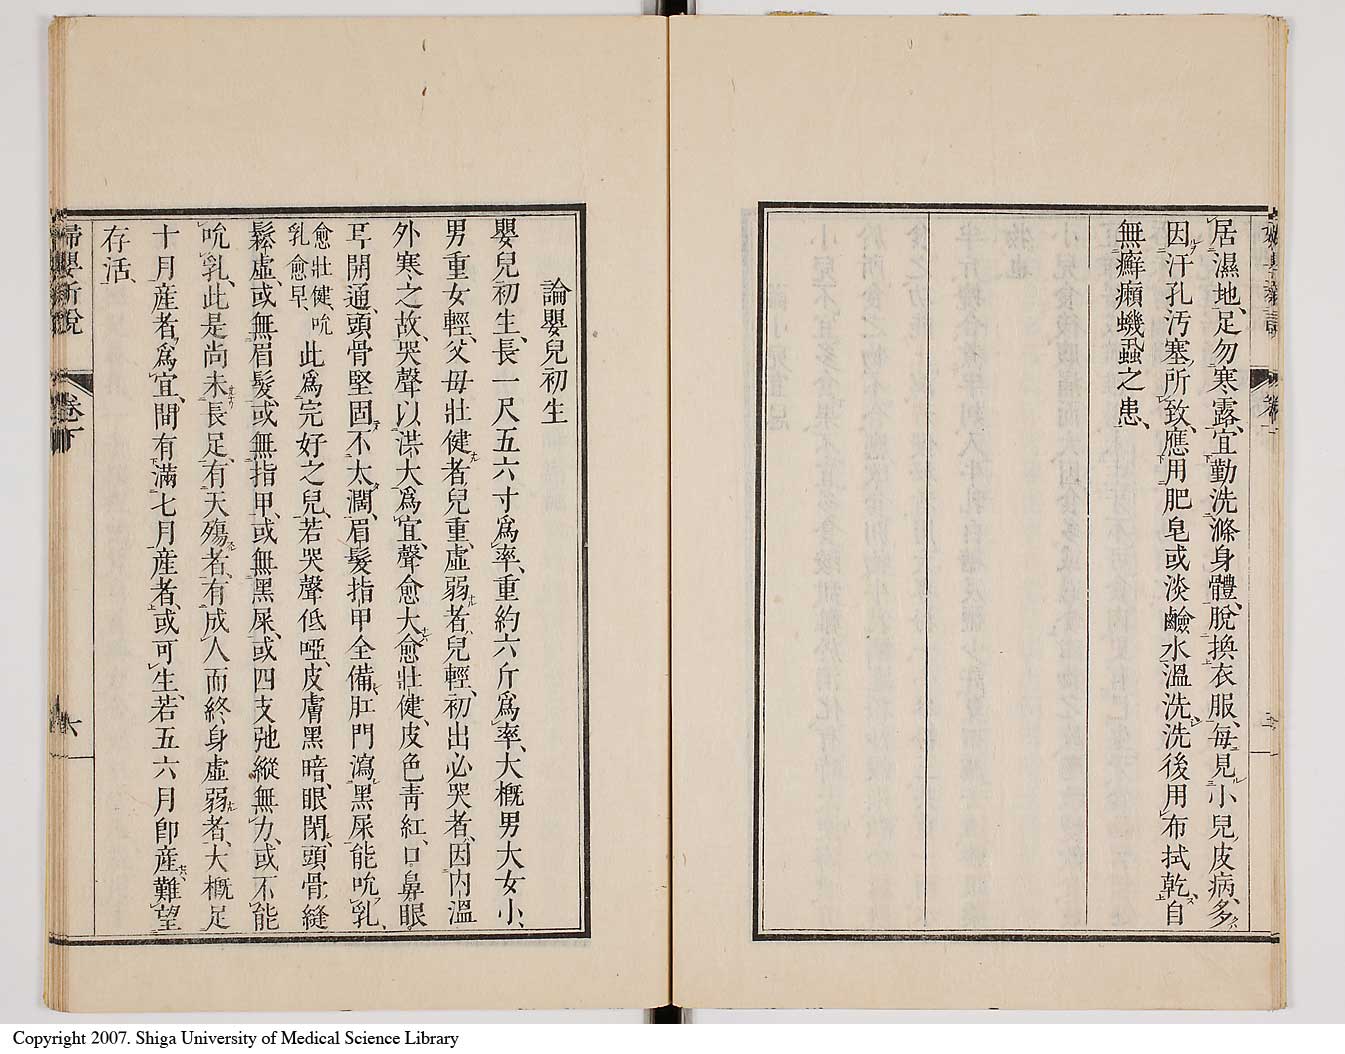 居濕地、足勿寒露、宜勤洗滌身體、脫換衣服、每見小兒皮病、多
因汗孔汚塞所致、應用肥皂或淡鹼水溫洗、洗後用布拭乾、自
無癬癩蟣蝨之患、
論嬰兒初生
嬰兒初生、長一尺五六寸爲率、重約六斤爲率、大概男大女小、
男重女輕、父母壯健者兒重、虛弱者兒輕、初出必哭者、因內溫
外寒之故、哭聲以洪大爲宜、聲愈大愈壯健、皮色靑紅、口鼻眼
耳開通、頭骨堅固、不太濶、眉髮指甲全備、肛門瀉黑屎、能吮乳、
愈壯健、吮乳愈早、此爲完好之兒、若哭聲低啞、皮膚黑暗、眼閉、頭骨縫
鬆虛、或無眉髮、或無指甲、或無黑屎、或四支弛縱無力、或不能
吮乳、此是尚未長足、有天殤者、有成人而終身虛弱者、大概足
十月產者爲宜、間有滿七月產者、或可生、若五六月卽產、難望
存活、
婦嬰新說 卷下 六
Copyright 2007. Shiga University of Medical Science Library